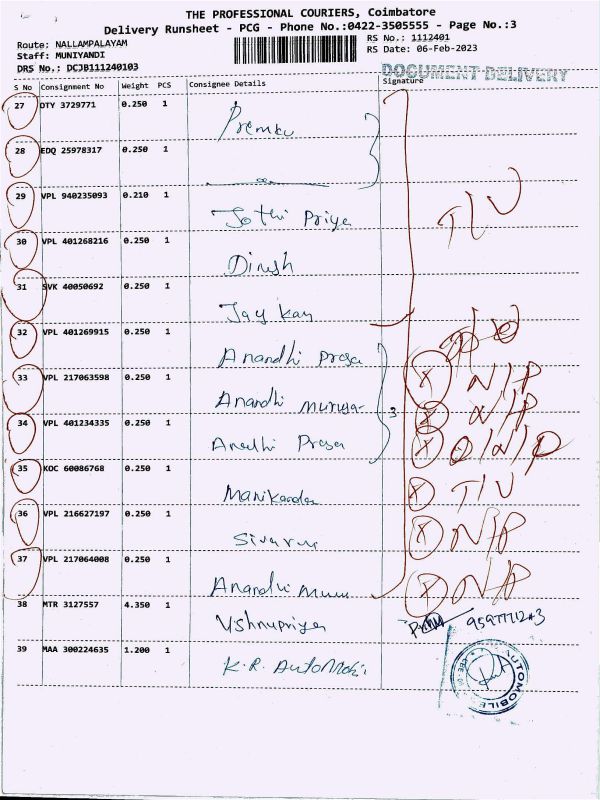 THE PROFESSIONAL COURIERS, Coimbatore
Delivery Runsheet - PCG - Phone No.:0422-3505555 - Page No.:3
Route: NALLAMPALAYAM
RS No.: 1112401
Staff: MUNIYANDI
RS Date: 06-Feb-2023
DRS No.: DCJB111240103
DOCUMENT DELIVERY
S No Consignment No Weight PCS Consignee Details Signature
27 DTY 3729771 0.250 1
28 EDQ 25978317 0.250 1
29 VPL 940235093 0.210 1 Jothi Priya
30 VPL 401268216 0.250 1 Dinesh
31 SVK 40050692 0.250 1 Jay Kay
32 VPL 401269915 0.250 1 Anandhi Prasa
33 VPL 217063598 0.250 1 Anandhi Murusa N/P
34 VPL 401234335 0.250 1 Prasa N/P
3
35 KOC 60086768 0.250 1 Manikanda
36 VPL 216627197 0.250 1 N/P
37 VPL 217064008 0.250 1 Anandhi N/P
38 MTR 3127557 4.350 1 Vshnupriya
39 MAA 300224635 1.200 1 K.R. Automobi
AUTOMOBILES